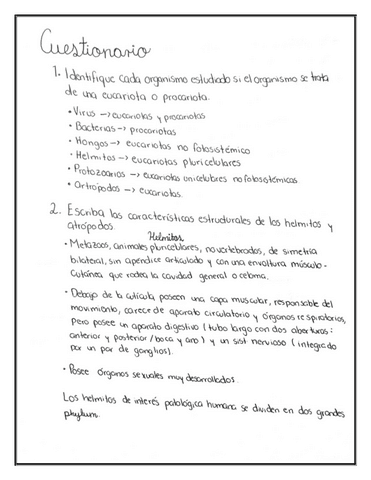 Cuestionario
1. Identifique cada organismo estudiado si el organismo se trata
de una eucariota o procariota.
• Virus -> eucariotas y procariotas
• Bacterias -> procariotas
• Hongos -> eucariotas no fotosistémico
• Helmitos -> eucariotas pluricelulares
• Protozoarios -> eucariotas unicelulares no fotosistémicos
• Artrópodos -> eucariotas.
2. Escriba las características estructurales de los helmitos y
atrópodos.
Helmitos
• Metazoos, animales pluricelulares, no vertebrados, de simetría
bilateral, sin apéndice articulado y con una envoltura músculo-
Cutánea que rodea la cavidad general o celoma.
• Debajo de la cutícula poseen una capa muscular, responsable del
movimiento, carecer de aparato circulatorio y órganos respiratorios,
pero posee un aparato digestivo (tubo largo con dos aberturas:
anterior y posterior/boca y ano) y un sist nervioso (integrado
por un par de ganglios).
• Posee órganos sexuales muy desarrollados.
Los helmitos de interés patológica humana se dividen en dos grandes
phylum.